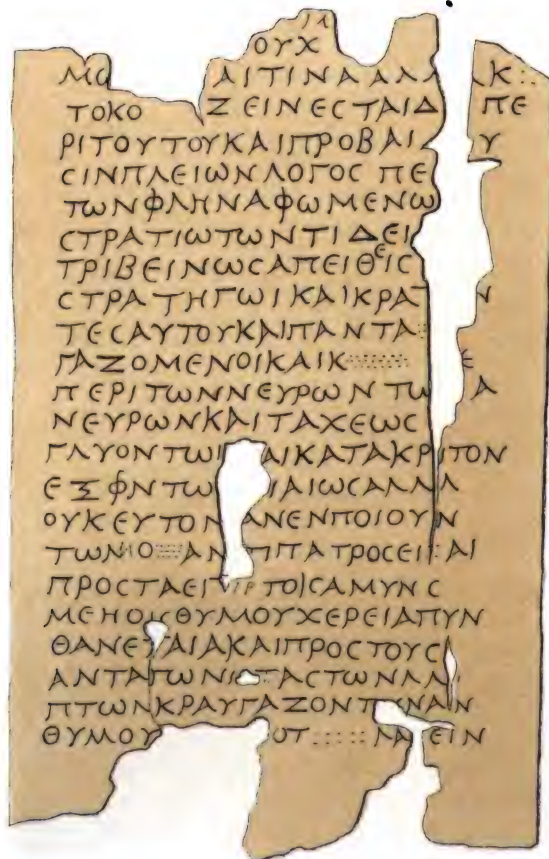 ΟΥΧ
ΜΟ ΑΙΤΙΝΑΑΛΛ Κ
ΤΟΚΟ ΖΕΙΝΕϹΤΑΙΔ ΠΕ
ΡΙΤΟΥΤΟΥΚΑΙΠΡΟΒΑΙ Υ
ϹΙΝΠΛΕΙΩΝΛΟΓΟϹΠΕ
ΤΩΝΦΛΗΝΑΦΩΜΕΝΩ
ϹΤΡΑΤΙΩΤΩΝΤΙΔΕΙ
ΤΡΙΒΕΙΝΩϹΑΠΕΙΘΕΙϹ
ϹΤΡΑΤΗΓΩΙΚΑΙΚΡΑΤ Ν
ΤΕϹΑΥΤΟΥΚΑΙΠΑΝΤΑ
ΓΑΖΟΜΕΝΟΙΚΑΙΚ Ε
ΠΕΡΙΤΩΝΝΕΥΡΩΝΤΩ Α
ΝΕΥΡΩΝΚΑΙΤΑΧΕΩϹ
ΓΛΥΟΝΤΩΙ ΑΙΚΑΤΑΚΡΙΤΟΝ
ΕΞΦΝΤΩ ΙΑΙΩϹΑΛΛΛ
ΟΥΚΕΥΤΟΝ ΑΝΕΝΠΟΙΟΥΝ
ΤΩΝ ΙΟ ΑΝ ΠΠΑΤΡΟϹΕΙ ΑΙ
ΠΡΟϹΤΑΕΙ ΤΟΙϹΑΜΥΝϹ
ΜΕΗΟΙϹΘΥΜΟΥΧΕΡΕΙΑΠΥΝ
ΘΑΝΕΥΑΙΑΚΑΙΠΡΟϹΤΟΥϹ
ΑΝΤΑΓΩΝΙ ΤΑϹΤΩΝΛΛ
ΠΤΩΝΚΡΑΥΓΑΖΟΝΤ ΝΑΙΝ
ΘΥΜΟΥ ΟΤ ΛΑ ΕΙΝ